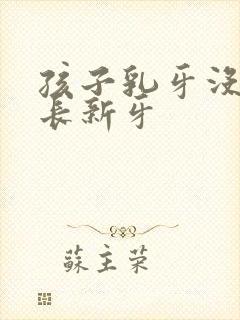 孩子乳牙没
長新牙
蘇主榮